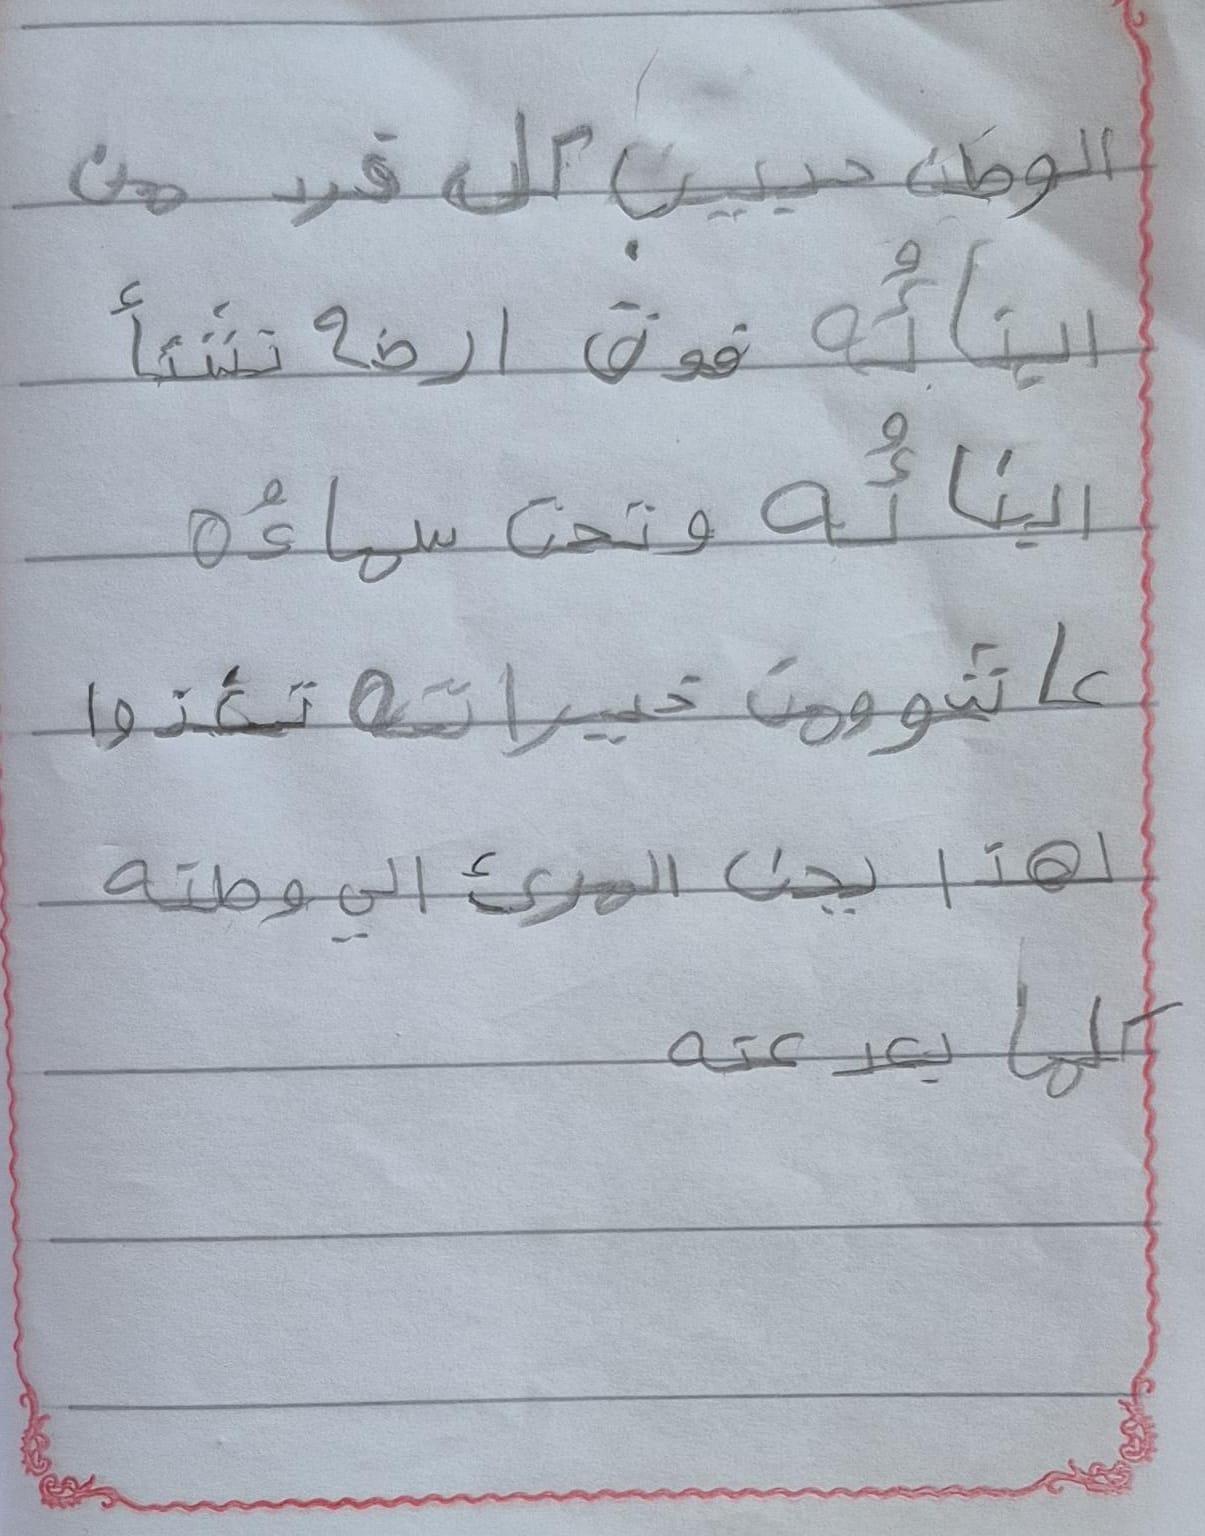 الوطن حبيب كل فرد من
ابنائُه فوق ارضه تنشأ
ابنائُه وتحت سماءُه
عاشوومن خيراته تغذوا
لهذا يحن المرئ الي وطنه
كلما بعد عنه